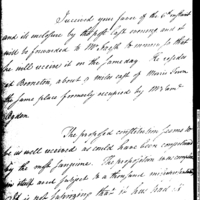 I received your favor of the 6th instant
and its inclosure by the post last evening and it
will be forwarded to Mr. to morrow so that
he will receive it on the same day. He resides
at Bernston, about 9 miles east of Morris Town
the same place formerly occupied by Mr.
Ogden.
The proposed constitution seems to
be as well received as could have been expected
by the most sanguine. The proposition was
itself and subject to a thousand
it is not surprising that it has had